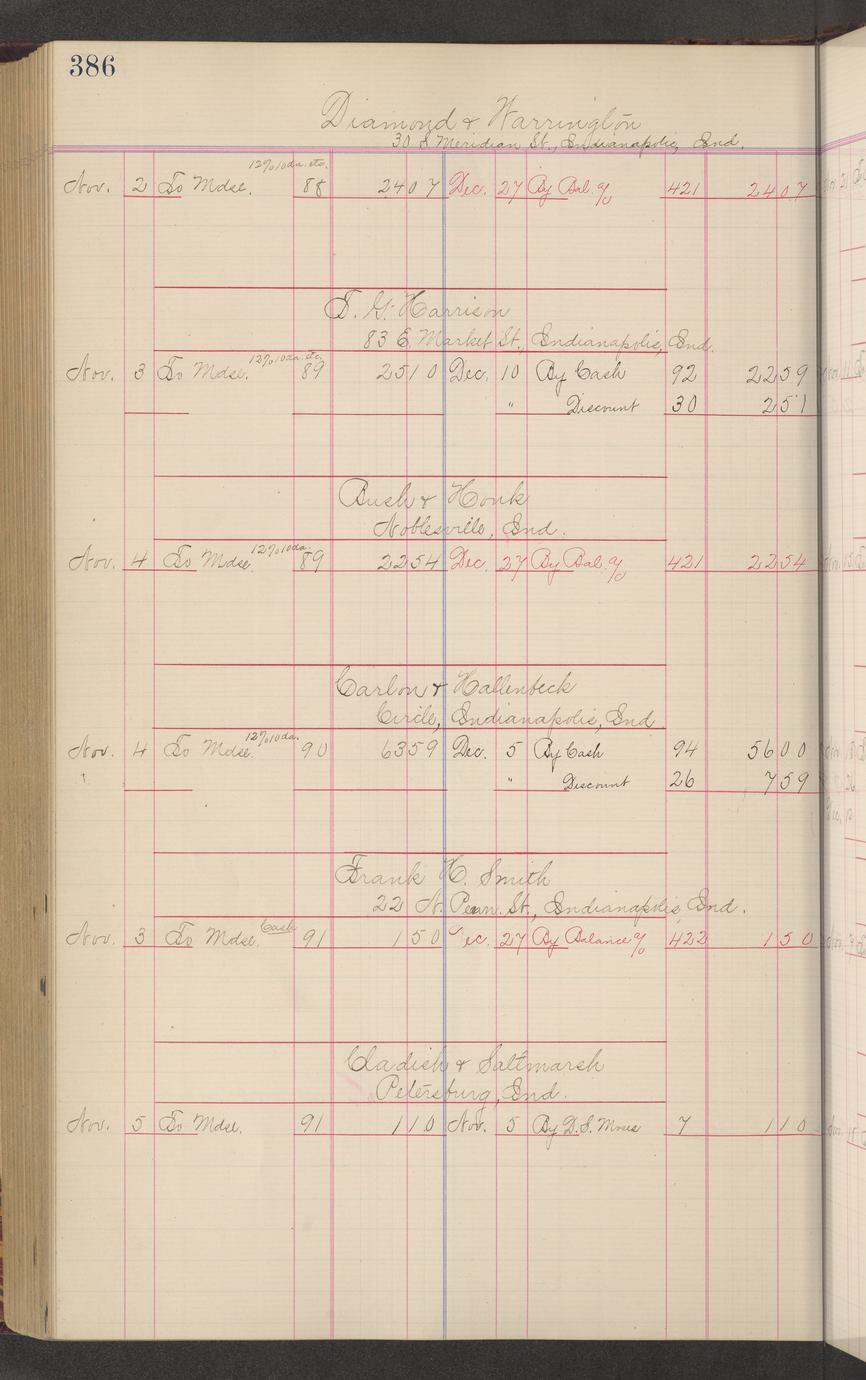 386
Diamond & Warrington
30 S Meridian St., Indianapolis, Ind.
12% 10 da. etc.
Nov. 2 To Mdse. 88 2407 Dec. 27 By Bal. % 421 2407
T. G. Harrison
83 E. Market St., Indianapolis, Ind.
12% 10 da. etc.
Nov. 3 To Mdse. 89 2510 Dec. 10 By Cash 92 2259
" Discount 30 251
Bush & Honk
Noblesville, Ind.
12% 10 da.
Nov. 4 To Mdse. 89 2254 Dec. 27 By Bal. % 421 2254
Carlon & Hallenbeck
Circle, Indianapolis, Ind
12% 10 da.
Nov. 4 To Mdse. 90 6359 Dec. 5 By Cash 94 5600
" Discount 26 759
Frank H. Smith
22 N. Penn. St., Indianapolis, Ind.
Cash
Nov. 3 To Mdse. 91 150 Dec. 27 By Balance % 422 150
Cladish & Saltmarsh
Petersburg, Ind.
Nov. 5 To Mdse. 91 110 Nov. 5 By D. S. Moses 7 110